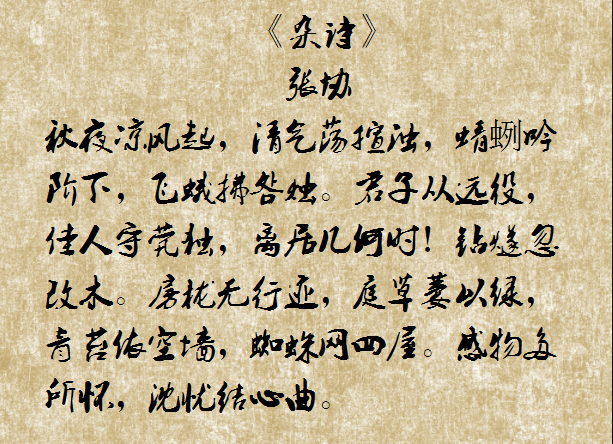 《杂诗》
张协
秋夜凉风起，清气荡暄浊，蜻蛚吟
阶下，飞蛾拂明烛。君子从远役，
佳人守茕独，离居几何时！钻燧忽
改木。房栊无行迹，庭草萋以绿，
青苔依空墙，蜘蛛网四屋。感物多
所怀，沈忧结心曲。